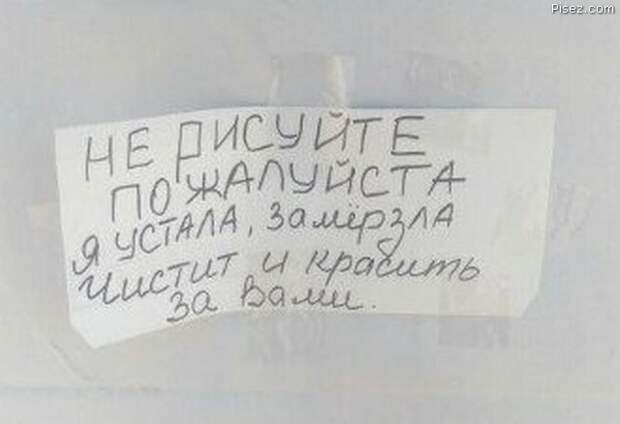 Pisez.com
НЕ РИСУЙТЕ
ПОЖАЛУЙСТА
Я УСТАЛА, Замёрзла
Чистит и красить
за Вами.